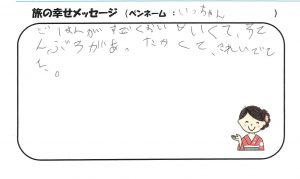 旅の幸せメッセージ（ペンネーム：いっちゃん　　　　）
ごはんがすごくおいしいくて、そて
んぶろがあ。たかくて、きれいでで
た。